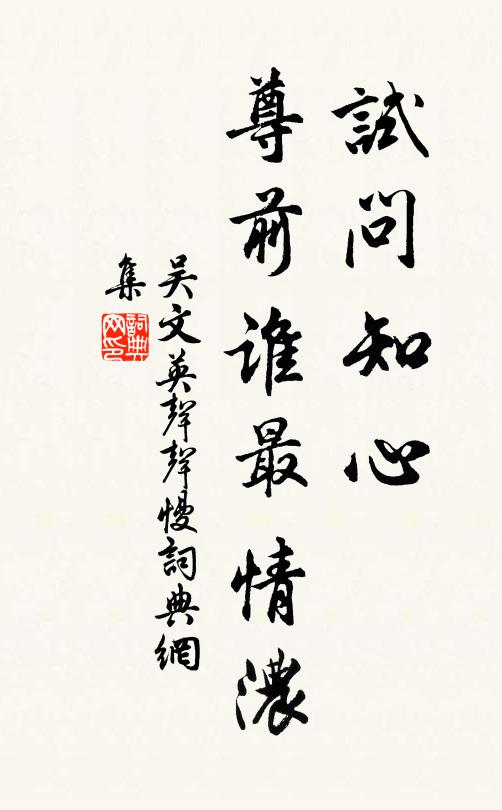 試問知心
尊前誰最情濃
吴文英聲聲慢詞典網
集
詞典
网印